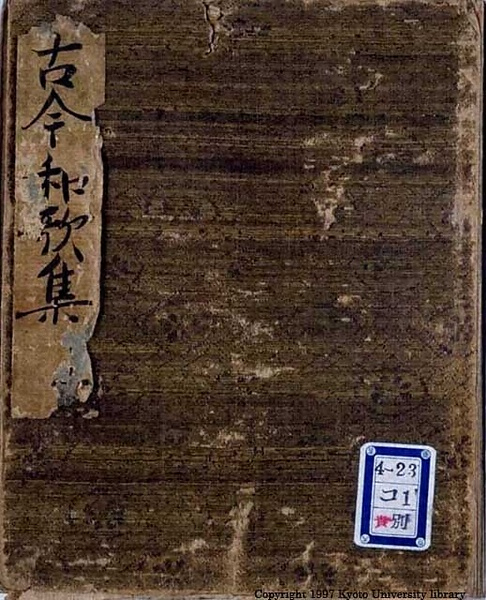 古今和歌集
4-23
コ1
貴別
Copyright 1997 Kyoto University library